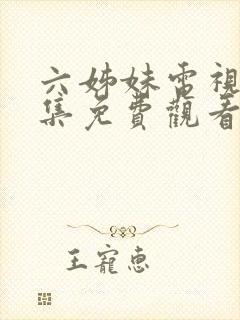 六姊妹電視
集免費觀看
王寵惠